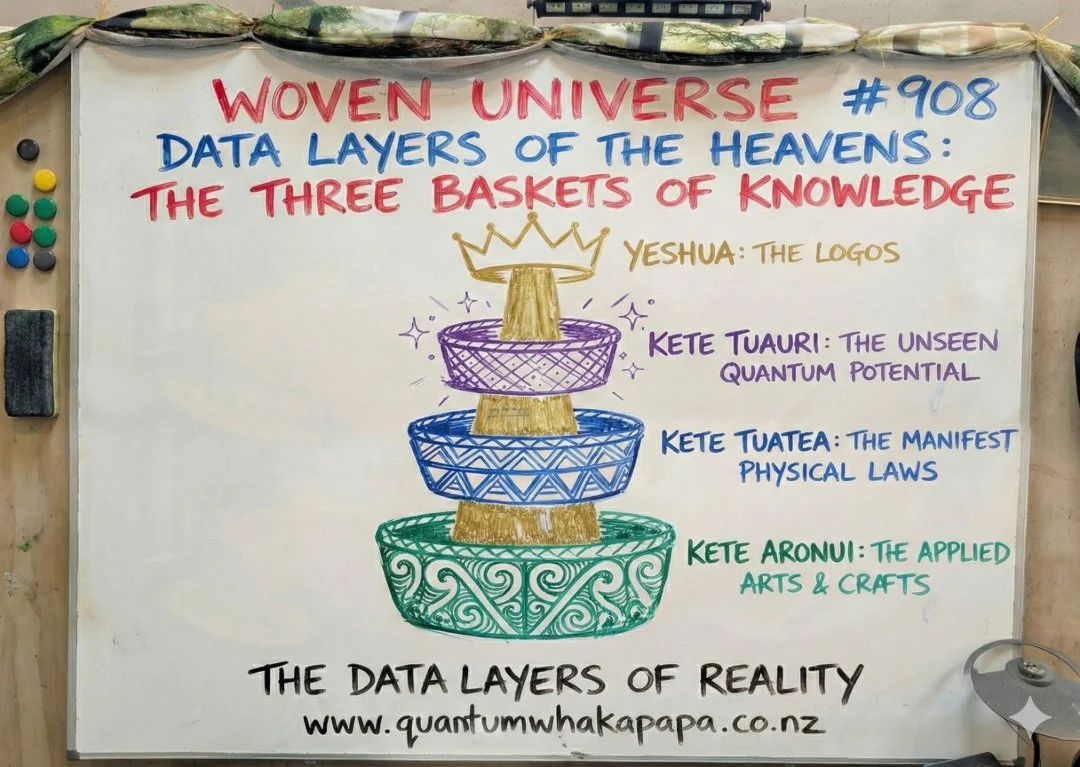 WOVEN UNIVERSE #908
DATA LAYERS OF THE HEAVENS:
THE THREE BASKETS OF KNOWLEDGE
YESHUA: THE LOGOS
KETE TUAURI: THE UNSEEN
QUANTUM POTENTIAL
KETE TUATEA: THE MANIFEST
PHYSICAL LAWS
KETE ARONUI: THE APPLIED
ARTS & CRAFTS
THE DATA LAYERS OF REALITY
www.quantumwhakapapa.co.nz